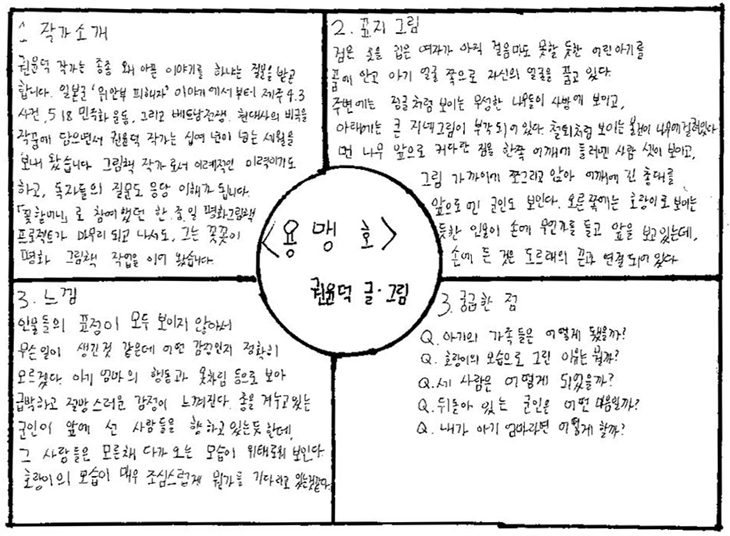 1. 작가소개
권윤덕 작가는 종종 왜 아픈 이야기를 하냐는 질문을 받곤
합니다. 일본군 '위안부 피해자' 이야기에서부터 제주 4.3
사건, 5.18 민주화 운동, 그리고 베트남전쟁. 현대사의 비극을
작품에 담으면서 권윤덕 작가는 십여 년이 넘는 세월을
보내 왔습니다. 그림책 작가로서 이례적인 이력이기도
하고, 독자들의 질문도 응당 이해가 됩니다.
『꽃할머니』로 참여했던 한·중·일 평화그림책
프로젝트가 마무리 되고 나서도, 그는 꿋꿋이
평화 그림책 작업을 이어 왔습니다.
2. 표지 그림
검은 옷을 입은 여자가 아직 걸음마도 못할 듯한 어린 아기를
품에 안고 아기 얼굴 쪽으로 자신의 얼굴을 품고 있다.
주변에는 정글처럼 보이는 무성한 나무들이 사방에 보이고,
아래에는 큰 지네그림이 부각되어 있다. 철퇴처럼 보이는 물체이 나무에 걸려있다
먼 나무 앞으로 커다란 짐을 한쪽 어깨에 둘러멘 사람 셋이 보이고,
그림 가까이에 쪼그리고 앉아 어깨에 긴 총대를
앞으로 멘 군인도 보인다. 오른쪽에는 호랑이로 보이는
듯한 인물이 손에 무언가를 들고 앞을 보고 있는데,
손에 든 것은 도르래의 끈과 연결되어 있다
<용맹호>
권윤덕 글·그림
3. 느낌
인물들의 표정이 모두 보이지 않아서
무슨일이 생긴것 같은데 어떤 감정인지 정확히
모르겠다. 아기 엄마의 행동과 옷차림 등으로 보아
급박하고 절망스러운 감정이 느껴진다. 총을 겨누고 있는
군인이 앞에 선 사람들을 향하고 있는듯 한데,
그 사람들은 모른채 다가오는 모습이 위태로워 보인다.
호랑이의 모습이 매우 조심스럽게 뭔가를 기다리고 있는것같다
3. 궁금한 점
Q. 아기의 가족들은 어떻게 됐을까?
Q. 호랑이의 모습으로 그린 이유는 뭘까?
Q. 세 사람은 어떻게 되었을까?
Q. 뒤돌아 있는 군인은 어떤 마음일까?
Q. 내가 아기 엄마라면 어떻게 할까?